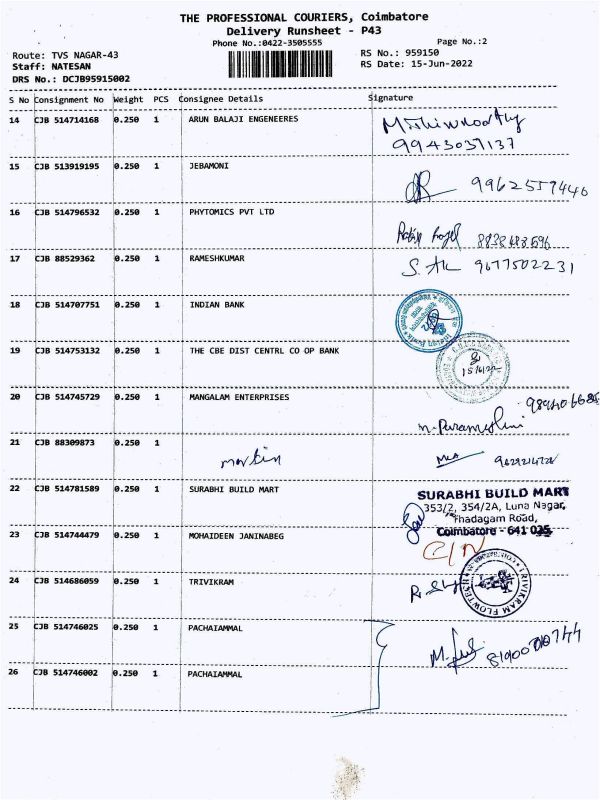 THE PROFESSIONAL COURIERS, Coimbatore
Delivery Runsheet - P43
Phone No.:0422-3505555
Page No.:2
Route: TVS NAGAR-43
RS No.: 959150
Staff: NATESAN
RS Date: 15-Jun-2022
DRS No.: DCJB95915002
S No Consignment No Weight PCS Consignee Details Signature
14 CJB 514714168 0.250 1 ARUN BALAJI ENGENEERES
9943031137
15 CJB 513919195 0.250 1 JEBAMONI
9962557440
16 CJB 514796532 0.250 1 PHYTOMICS PVT LTD
17 CJB 88529362 0.250 1 RAMESHKUMAR
9677502231
18 CJB 514707751 0.250 1 INDIAN BANK
19 CJB 514753132 0.250 1 THE CBE DIST CENTRL CO OP BANK
20 CJB 514745729 0.250 1 MANGALAM ENTERPRISES
21 CJB 88309873 0.250 1
martin
22 CJB 514781589 0.250 1 SURABHI BUILD MART
SURABHI BUILD MART
353/2, 354/2A, Luna Nagar,
Thadagam Road,
Coimbatore - 641 025
23 CJB 514744479 0.250 1 MOHAIDEEN JANINABEG
C/N
24 CJB 514686059 0.250 1 TRIVIKRAM
TRIVIKRAM FLOWTECH
25 CJB 514746025 0.250 1 PACHAIAMMAL
26 CJB 514746002 0.250 1 PACHAIAMMAL